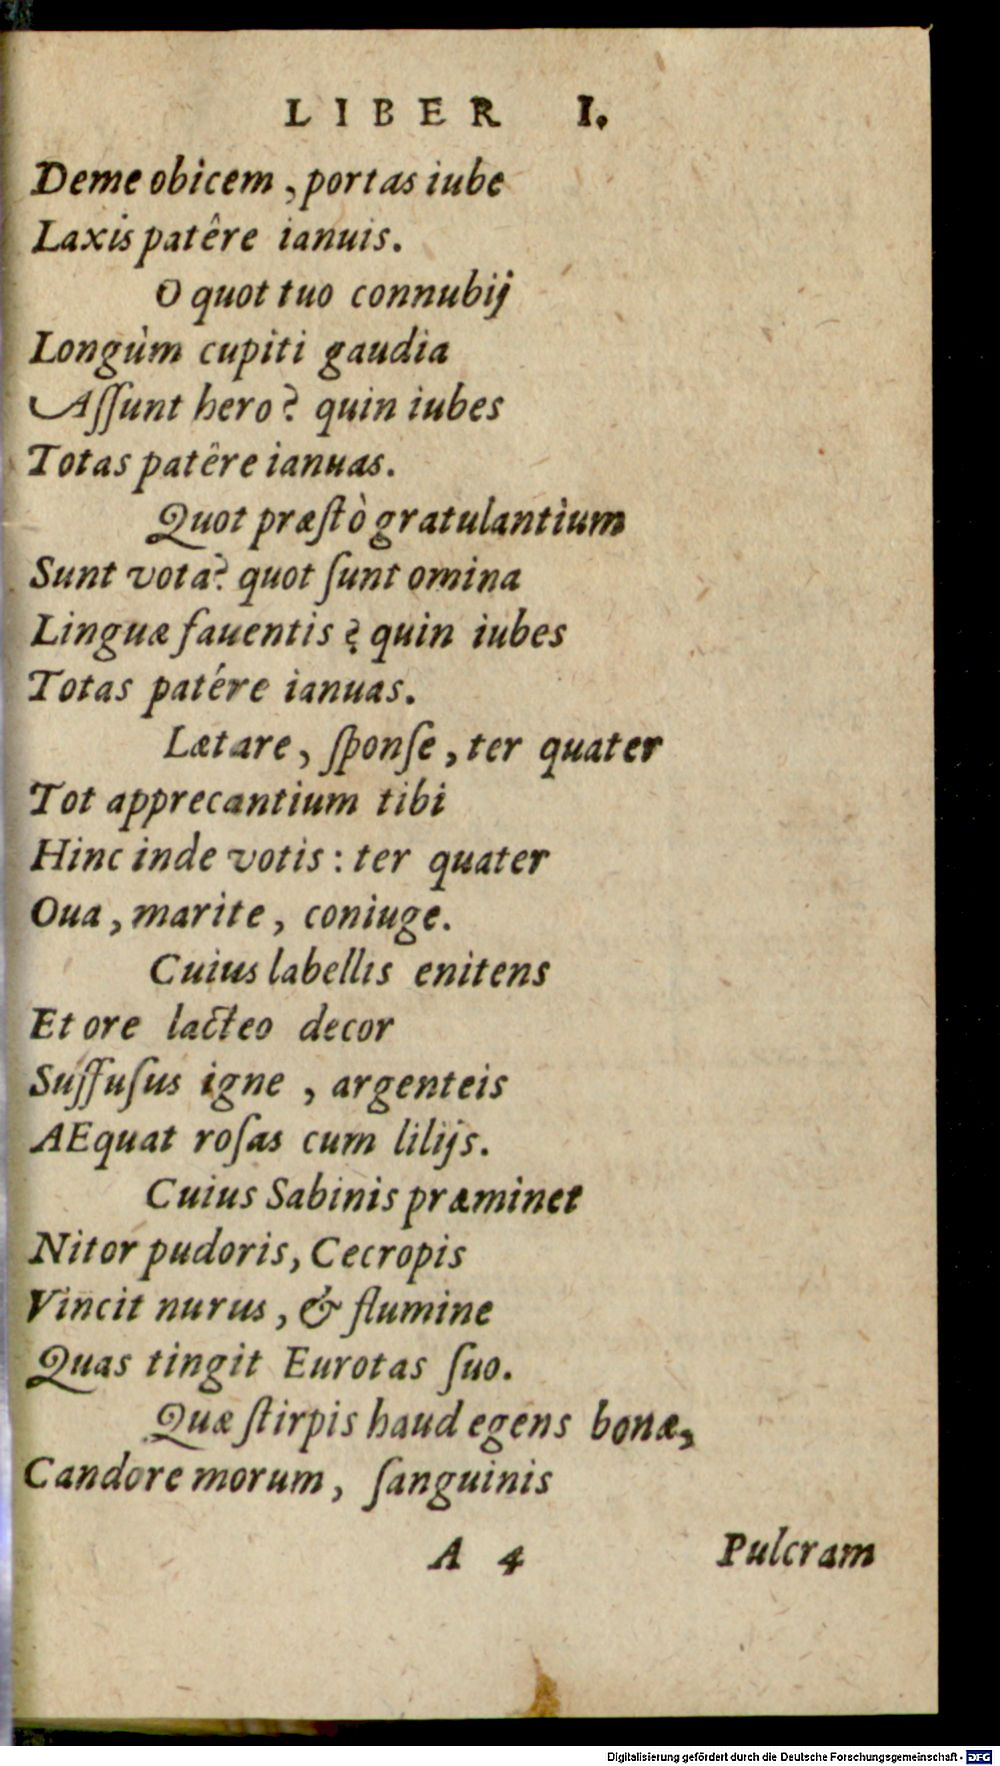 LIBER I.
Deme obicem, portas iube
Laxis patêre ianuis.
O quot tuo connubij
Longùm cupiti gaudia
Aſſunt hero? quin iubes
Totas patêre ianuas.
Quot præſtò gratulantium
Sunt vota? quot ſunt omina
Linguæ fauentis? quin iubes
Totas patére ianuas.
Lætare, ſponſe, ter quater
Tot apprecantium tibi
Hinc inde votis: ter quater
Oua, marite, coniuge.
Cuius labellis enitens
Et ore lacteo decor
Suffuſus igne, argenteis
AEquat roſas cum lilijs.
Cuius Sabinis præminet
Nitor pudoris, Cecropis
Vincit nurus, & flumine
Quas tingit Eurotas ſuo.
Quæ ſtirpis haud egens bonæ,
Candore morum, ſanguinis
A 4 Pulcram
Digitalisierung gefördert durch die Deutsche Forschungsgemeinschaft - DFG